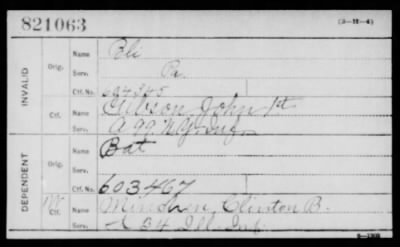 821063
(3-11-4)
INVALID
Orig.
Name Bli
Serv. Pa.
Ctf. No. 604345
Ctf.
Name Gibson John 1st
Serv. A 99 N.Y. Inf.
DEPENDENT
Orig.
Name Bat
Serv.
Ctf. No. 603467
W Ctf.
Name Clinton B.
Serv. 64 Ill. Inf.